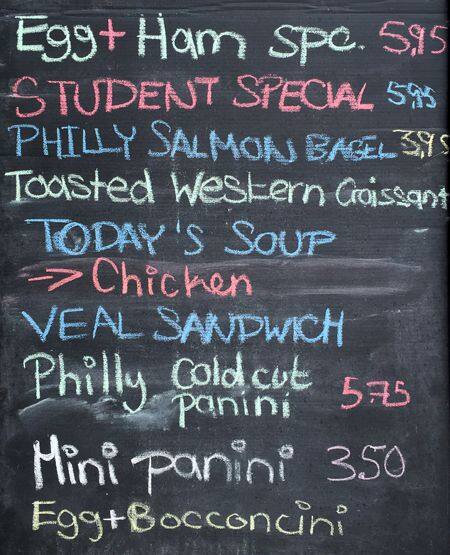 Egg + Ham spc. 5,95
STUDENT SPECIAL 5,95
PHILLY SALMON BAGEL 3,95
Toasted Western Croissant
TODAY'S SOUP
→ Chicken
VEAL SANDWICH
Philly Coldcut
panini 5.75
Mini panini 350
Egg+Bocconcini